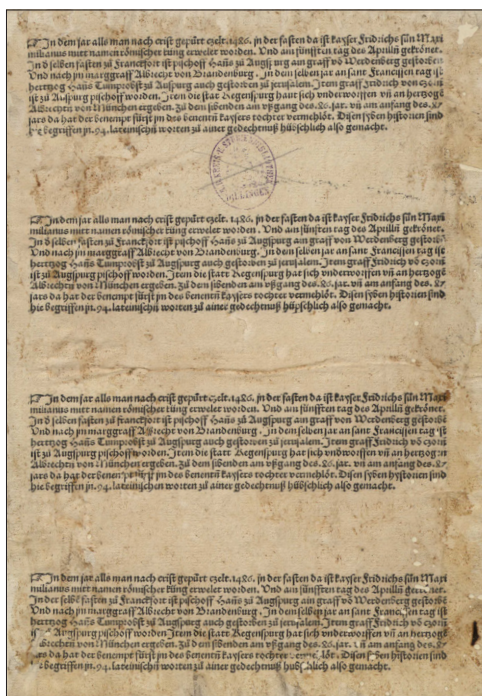 In dem jar alls man nach crist gepürt czelt. 1486. jn der fasten da ist kayser Fridrichs sün Maxi
milianus mitt namen römischer küng erwelet worden. Vnd am fünfften tag des Aprilln̄ gekrönet.
In d̄ selben fasten zü Franckfort ist pischoff Hañs zü Augspurg ain graff vō Werdenberg gestorben
Vnd nach jm marggraff Albrecht von Brandenburg. In dem selben jar an sant Franciscen tag ist
hertzog Hañs Tumprobst zü Augspurg auch gestorben zü jerusalem. Item graff Fridrich von
ist zü Augspurg pischoff worden. Item die stat Regenspurg hatt sich vnderworffen vn̄ an hertzogē
Albrecht von München ergeben. Zü dem sibenden am vßgang des. 86. jar. vn̄ am anfang des. 87
jars da hat der benempt fürst jm des benentn̄ kaysers tochter vermehlöt. Disen syben historien sind
begriffen jn. 94. lateinisch worten zü ainer gedechtnuß hübschlich also gemacht.
In dem jar alls man nach crist gepürt czelt. 1486. jn der fasten da ist kayser Fridrichs sün Maxi
milianus mitt namen römischer küng erwelet worden. Vnd am fünfften tag des Aprilln̄ gekrönet.
In d̄ selben fasten zü Franckfort ist pischoff Hañs zü Augspurg ain graff von Werdenberg gestorbē
Vnd nach jm marggraff Albrecht von Brandenburg. In dem selben jar an sant Franciscen tag ist
hertzog Hañs Tumprobst zü Augspurg auch gestorben zü jerusalem. Item graff Fridrich vō
ist zü Augspurg pischoff worden. Item die statt Regenspurg hat sich vnderworffen vn̄ an hertzogē
Albrechtn̄ von München ergeben. Zü dem sibenden am vßgang des. 86. jar. vn̄ am anfang des. 87
jars da hat der benempt fürst jm des benentn̄ kaysers tochter vermehlöt. Disen syben historien sind
hie begriffen jn. 94. lateinischn̄ worten zü ainer gedechtnuß hüpschlich also gemacht.
In dem jar alls man nach crist gepürt czelt. 1486. jn der fasten da ist kayser Fridrichs sün Maxi
milianus mitt namen römischer küng erwelet worden. Vnd am fünfften tag des Aprilln̄ gekrönet.
In d̄ selben fasten zü franckfort ist pischoff Hañs zü Augspurg ain graff vō Werdenberg gestorbē
Vnd nach jm marggraff Albrecht von Brandenburg. In dem selben jar an sant Franciscen tag ist
hertzog Hañs Tumprobst zü Augspurg auch gestorben zü jerusalem. Item graff Fridrich vō
ist zü Augspurg pischoff worden. Item die statt Regenspurg hat sich vndworffen vn̄ an hertzogn̄
Albrechtn̄ von München ergeben. Zü dem sibenden am vßgang des. 86. jar. vn̄ am anfang des. 87
jars da hat der benempt fürst jm des benentn̄ kaysers tochter vermehlöt. Disen syben hystorien sind
hie begriffen jn. 94. lateinischen worten zü ainer gedechtnuß hübschlich also gemacht.
In dem jar alls man nach crist gepürt czelt. 1486. jn der fasten da ist kayser Fridrichs sün Maxi
milianus mitt namen römischer küng erwelet worden. Vnd am fünfften tag des Aprilln̄
In der selbē fasten zü Franckfort ist pischoff Hañs zü Augspurg ain graff vō Werdenberg gestorbē
Vnd nach jm marggraff Albrecht von Brandenburg. In dem selben jar an sant tag ist
hertzog Hañs Tumprobst zü Augspurg auch gestorben zü jerusalem. Item graff Fridrich vō
zü Augspurg pischoff worden Item die statt Regenspurg hat sich vnderworffen vn̄ an hertzogē
von München ergeben. Zü dem sibenden am vßgang des. 86. jar. vn̄ am anfang des. 87
da hat der benempt fürst jm des benentn̄ kaysers tochter Disen syben historien sind
begriffen jn. 94. lateinischn̄ worten zü ainer gedechtnuß hübschlich also gemacht.